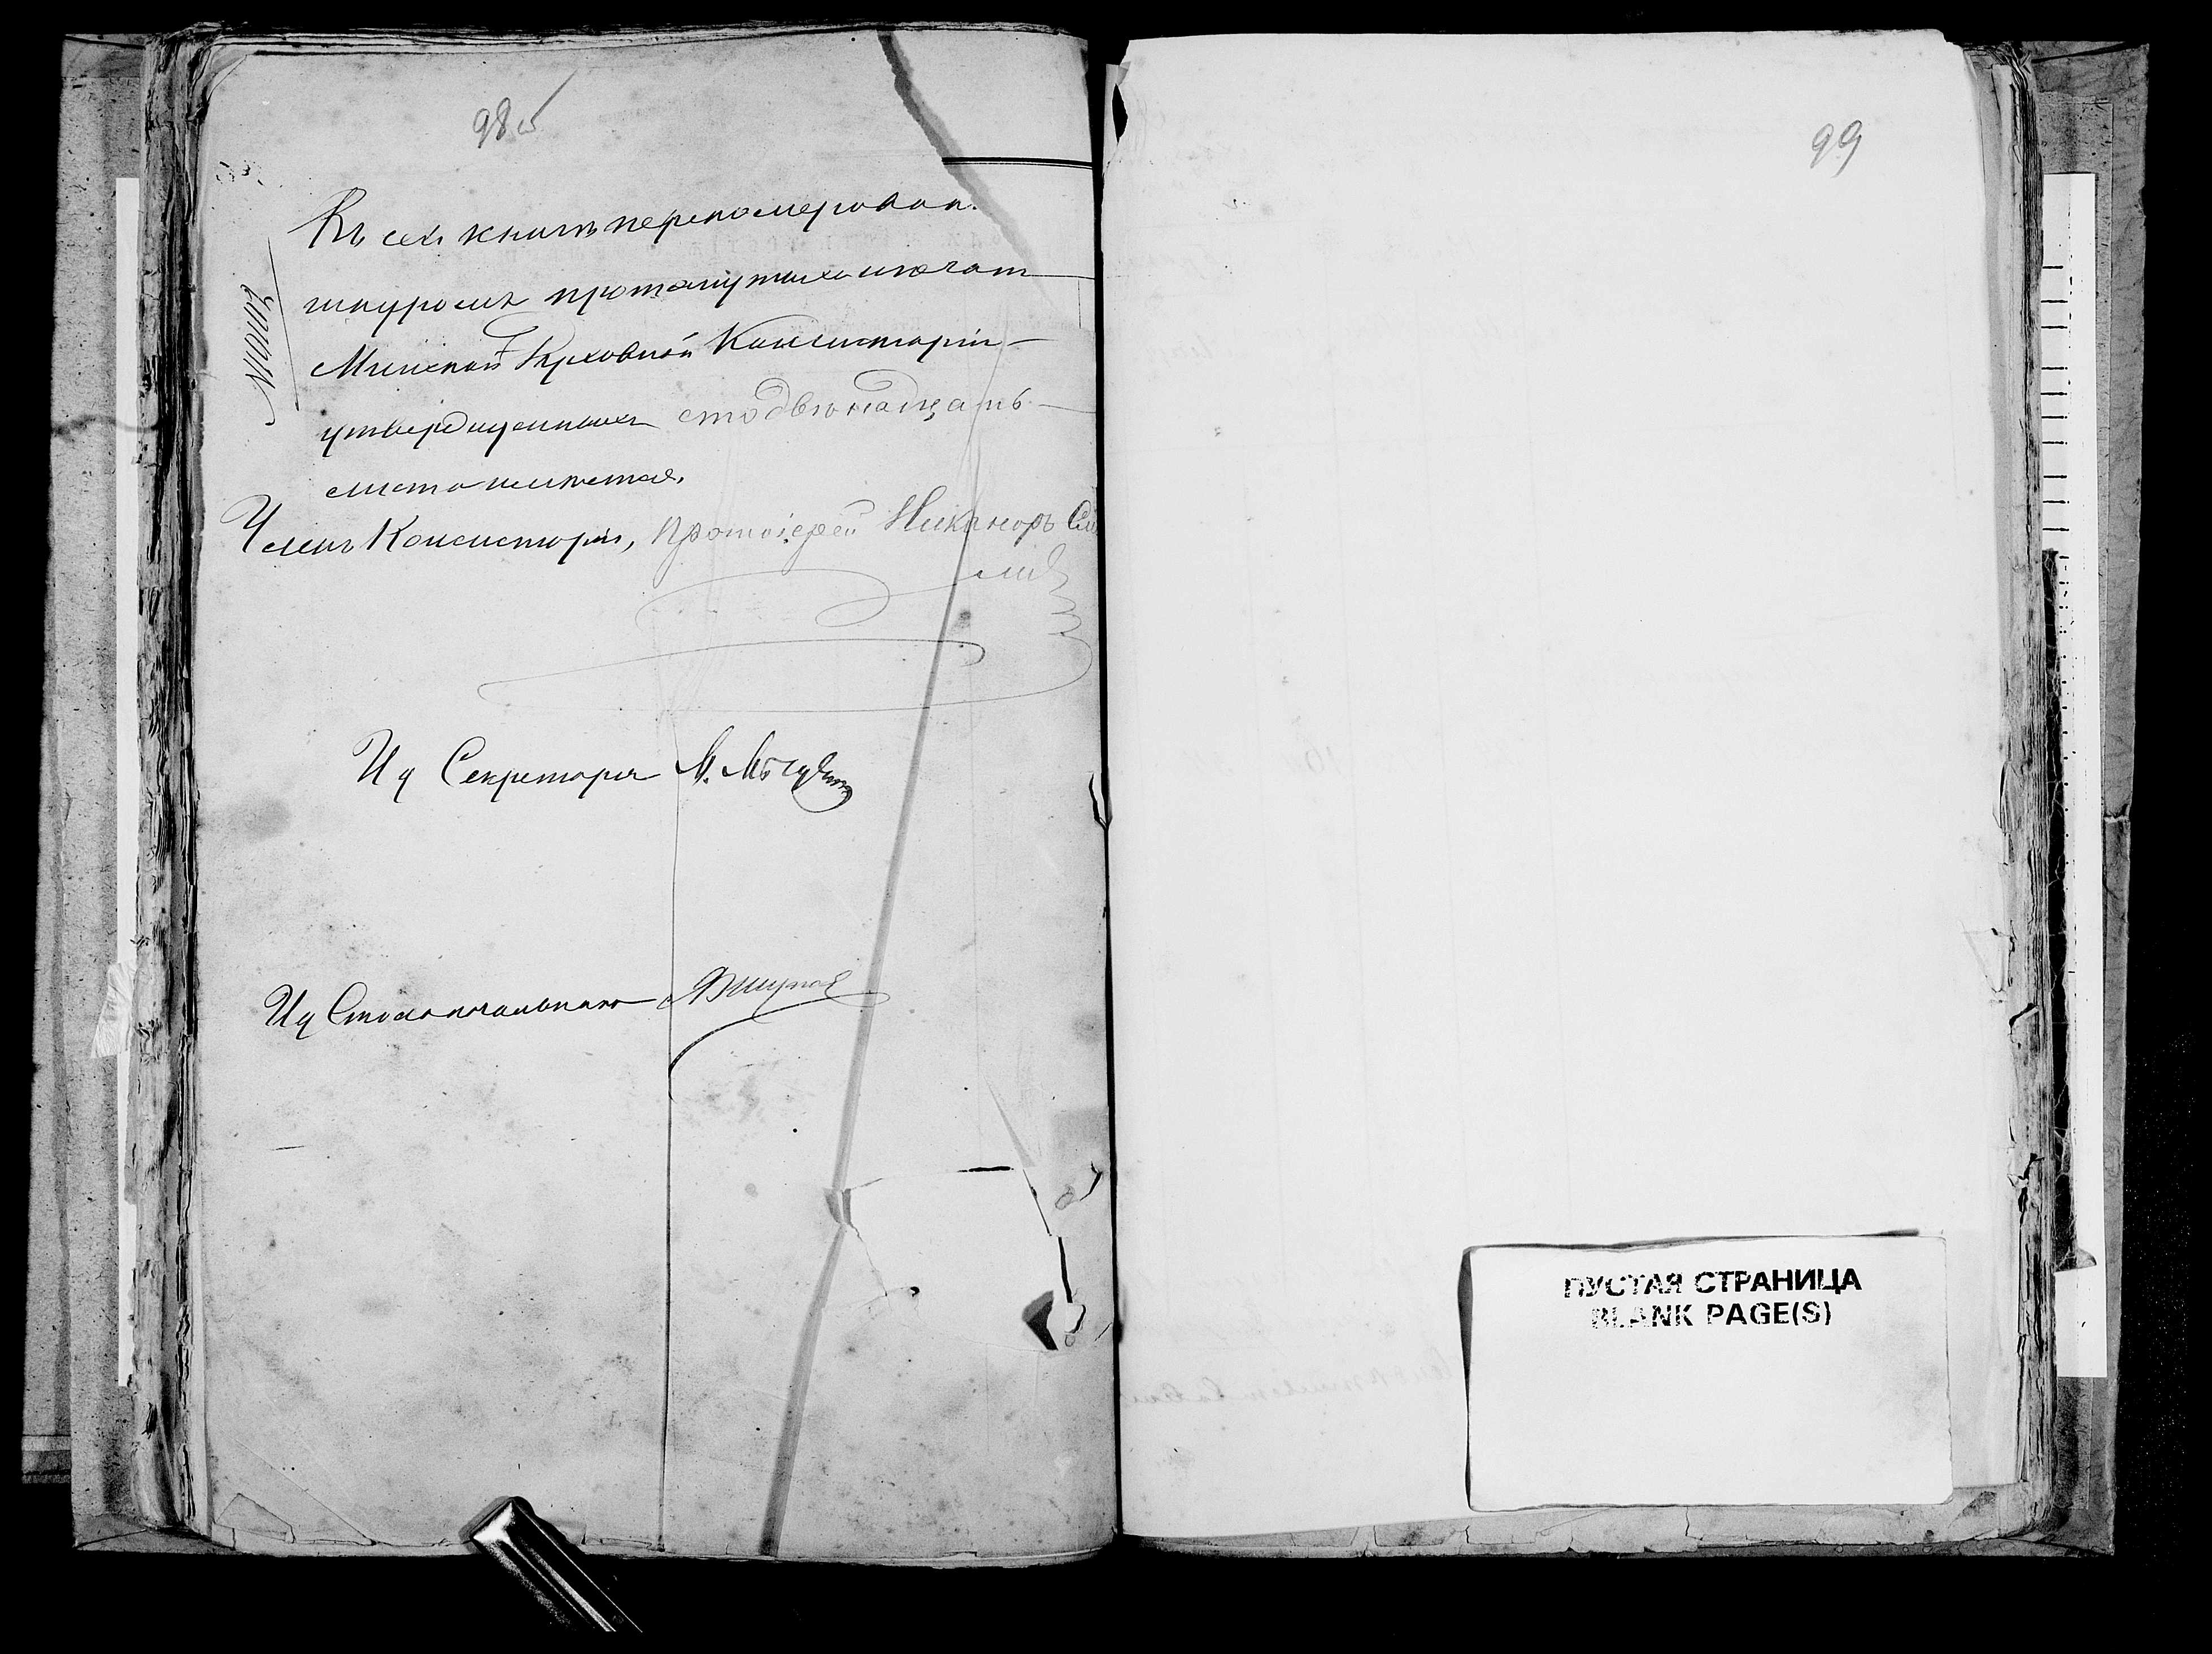 98 об
Въ сей книгѣ перенумерован.
шнуромъ протянутыхъ и печат
Минской Духовной Консисторіи
утвержденныхъ сто двѣнадцать
листовъ имѣется.
Членъ Консисторіи, Протоіерей Никаноръ См
Ид Секретаря М.
Ид Столоначальника
99
ПУСТАЯ СТРАНИЦА
BLANK PAGE(S)